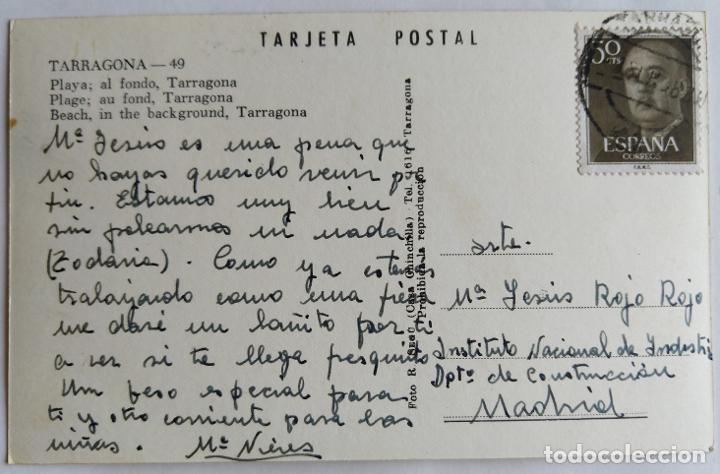 TARJETA POSTAL
TARRAGONA — 49
Playa; al fondo, Tarragona
Plage; au fond, Tarragona
Beach, in the background, Tarragona
50
CTS
ESPAÑA
CORREOS
F.N.M.T.
Mª Jesús es una pena que
no hayas querido venir
Estamos muy bien
sin pelearnos ni nada
(Todavía). Como ya estarás
trabajando como una fiera
me daré un bañito por ti
a ver si te llega fresquito
Un beso especial para
ti y otro corriente para las
niñas. Mª Nieves
Foto (Casa Chinchilla) Tel. Tarragona
(Prohibida la reproducción
Srta.
Mª Jesús Rojo Rojo
Instituto Nacional de Industri
Dptº de Construcción
Madrid
todocoleccion